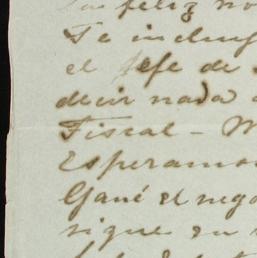 feliz no
Te incluy
el Jefe de
decir nada
Fiscal - M
Esperamo
Gané el nego
sigue su